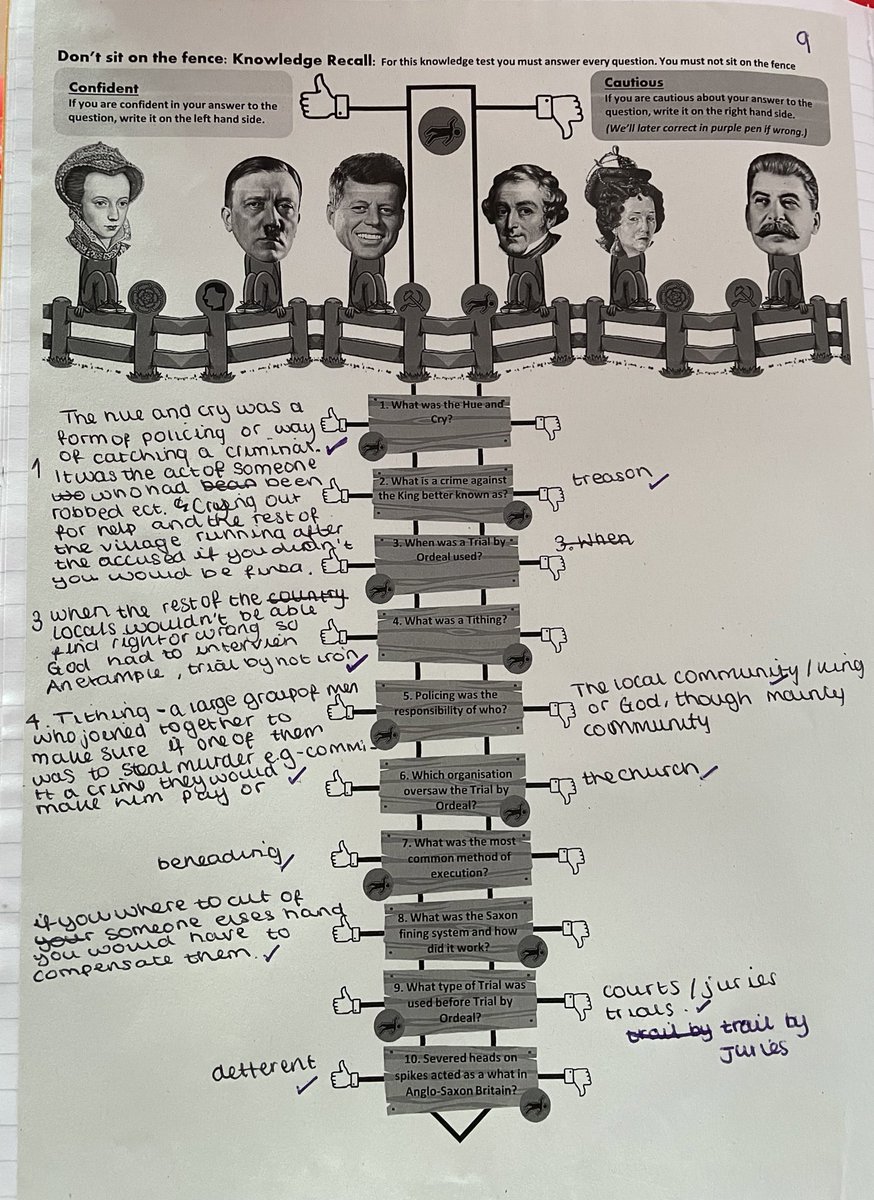 9
Don't sit on the fence: Knowledge Recall: For this knowledge test you must answer every question. You must not sit on the fence
Confident
If you are confident in your answer to the
question, write it on the left hand side.
Cautious
If you are cautious about your answer to the
question, write it on the right hand side.
(We'll later correct in purple pen if wrong.)
1. What was the Hue and
Cry?
1
The hue and cry was a
form of policing or way
of catching a criminal.
It was the act of someone
who had bean been
robbed ect. & Crying out
for help and the rest of
the village running after
the accused if you didn't
you would be fined.
2. What is a crime against
the King better known as?
treason
3. When was a Trial by
Ordeal used?
3. When
3 when the rest of the country
locals wouldn't be able
find right or wrong so
God had to intervien
An example, trial by hot iron
4. What was a Tithing?
4. Tithing - a large group of men
who joined together to
make sure if one of them
was to steal murder e.g-commi-
tt a crime they would
make him pay or
5. Policing was the
responsibility of who?
The local community / king
or God, though mainly
community
6. Which organisation
oversaw the Trial by
Ordeal?
the church
7. What was the most
common method of
execution?
beheading
8. What was the Saxon
fining system and how
did it work?
if you where to cut of
your someone elses hand
you would have to
compensate them.
9. What type of Trial was
used before Trial by
Ordeal?
courts / juries
trials.
trail by trail by
Juries
10. Severed heads on
spikes acted as a what in
Anglo-Saxon Britain?
detterent